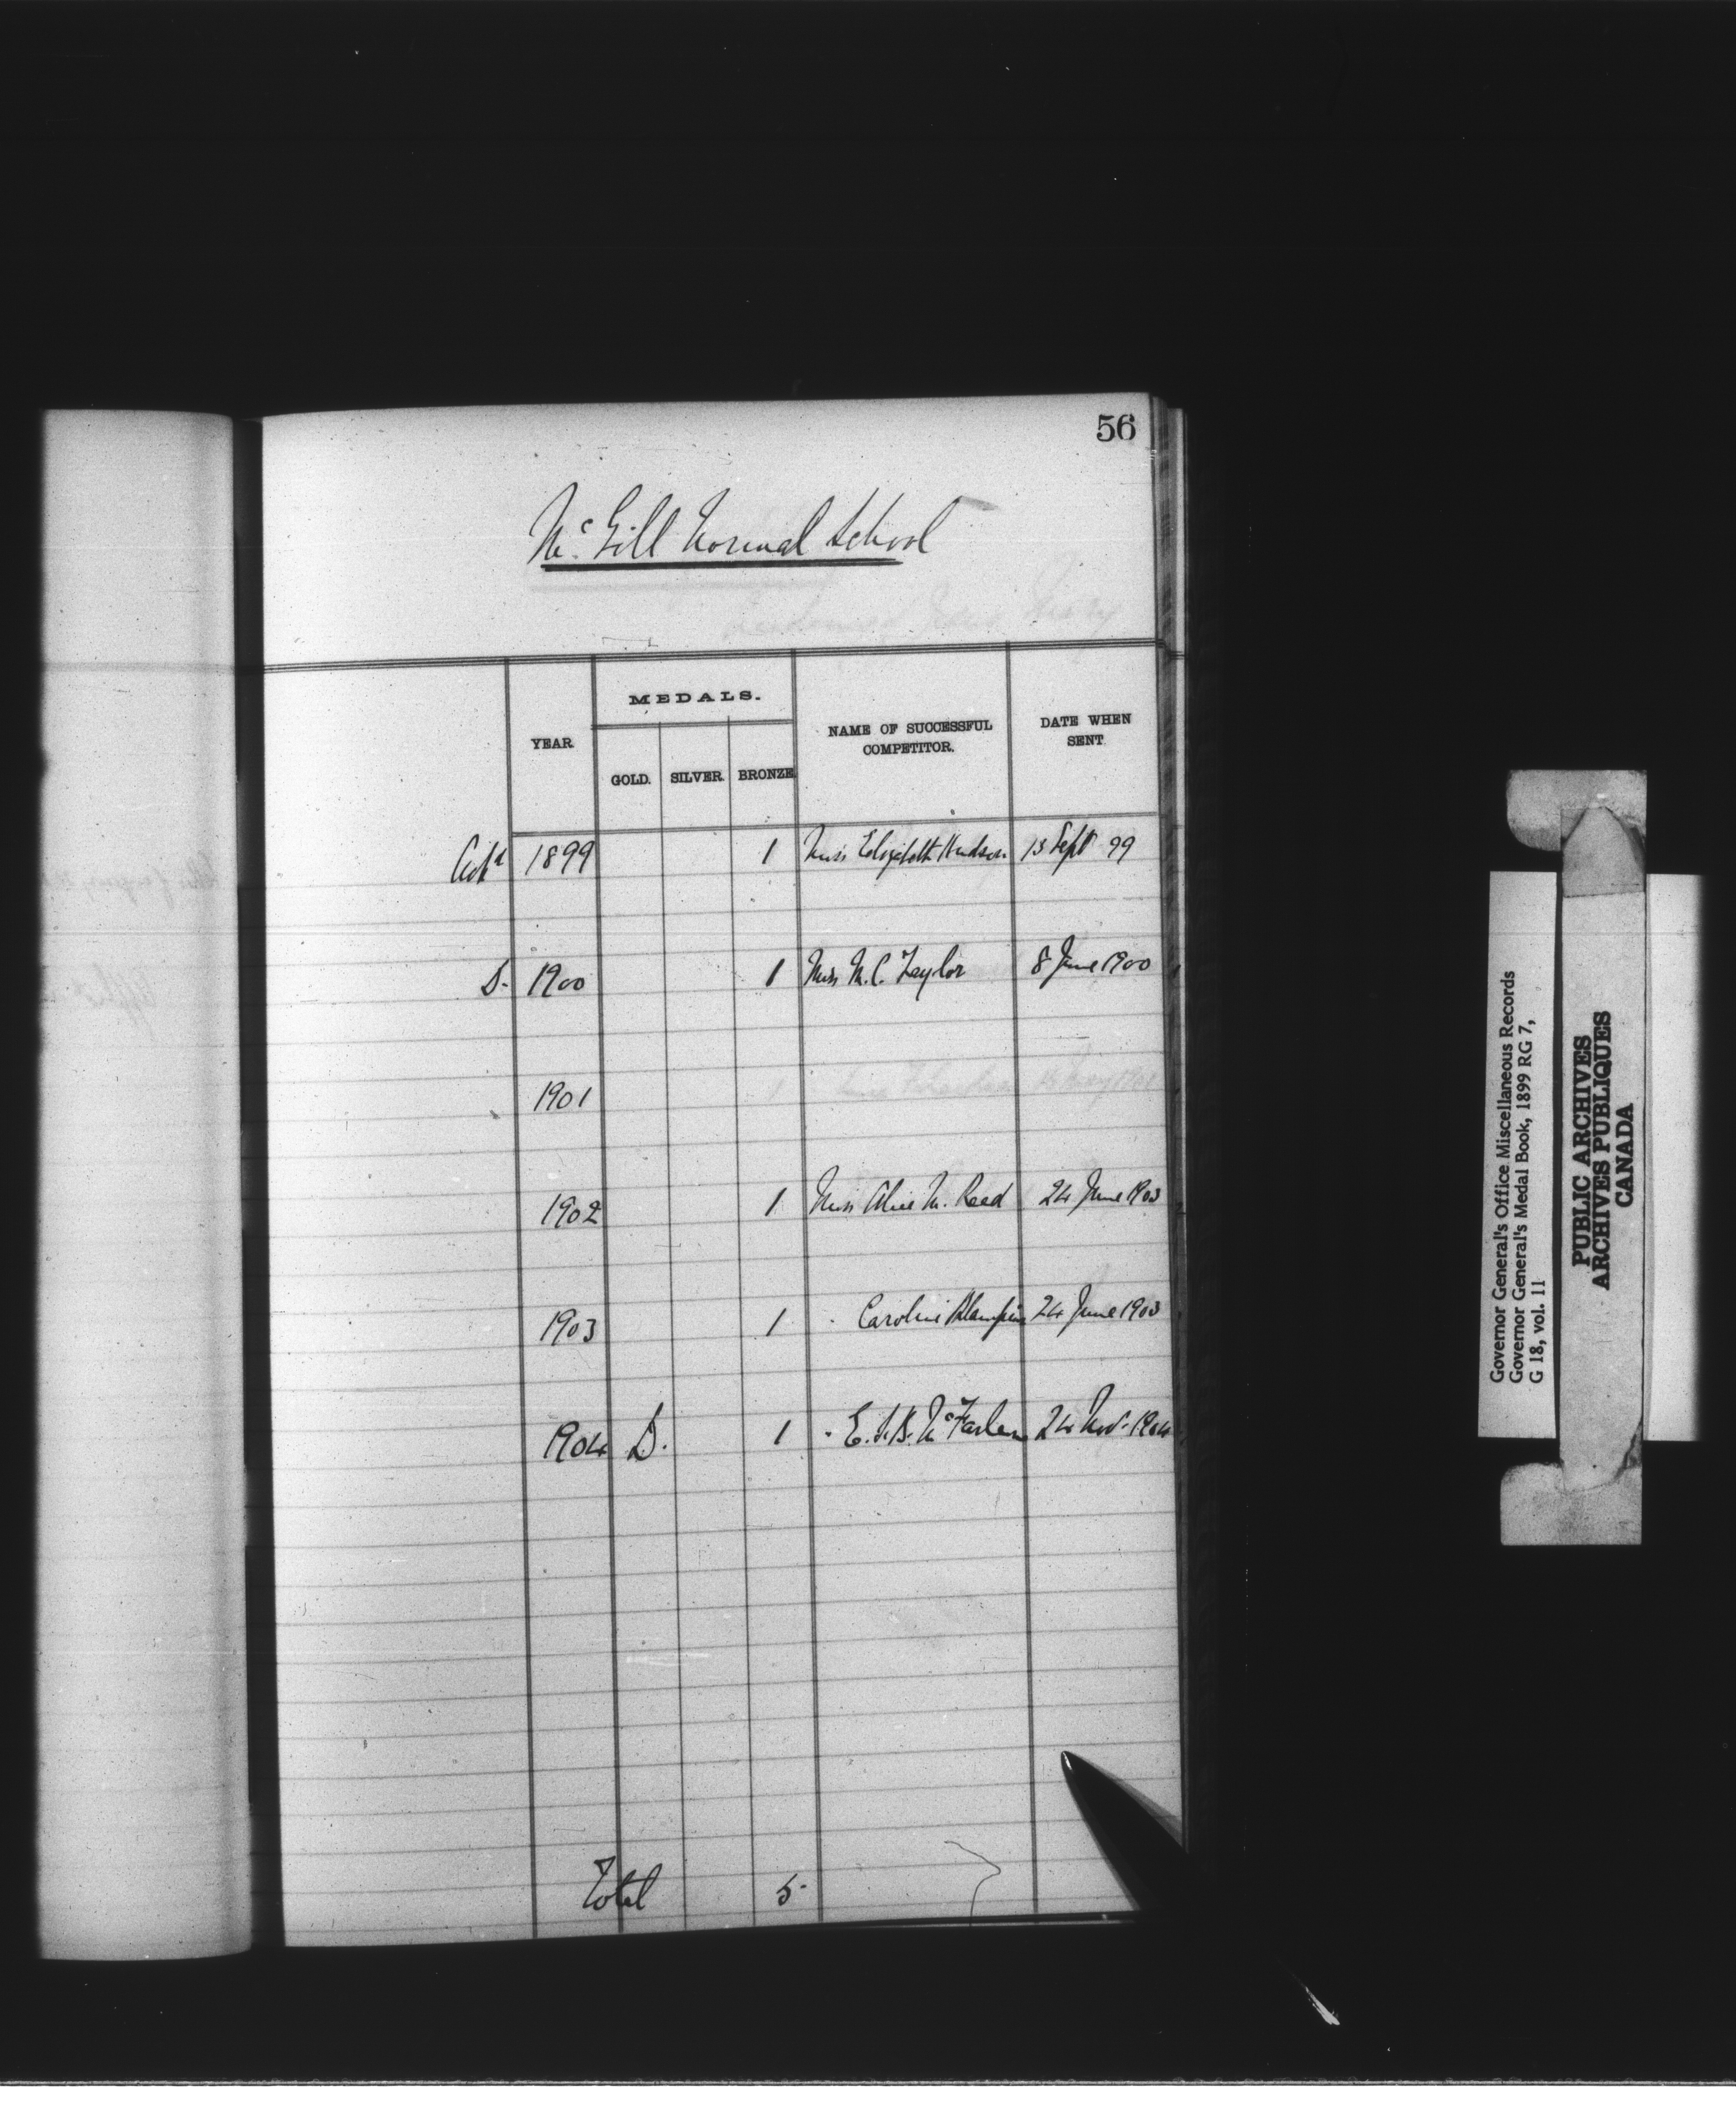 56
McGill Normal School
YEAR. MEDALS. NAME OF SUCCESSFUL COMPETITOR. DATE WHEN SENT.
GOLD. SILVER. BRONZE.
Ackd 1899 1 Miss Elizabeth Hudson 13 Sept 99
D. 1900 1 Miss M. C. Taylor 8 June 1900
1901
1902 1 Miss Alice M. Reed 24 June 1903
1903 1 " Caroline 24 June 1903
1904 D. 1 " E. S. B. McFarlane 24 Nov. 1904
Total 5
Governor General's Office Miscellaneous Records
Governor General's Medal Book, 1899 RG 7,
G 18, vol. 11
PUBLIC ARCHIVES
ARCHIVES PUBLIQUES
CANADA